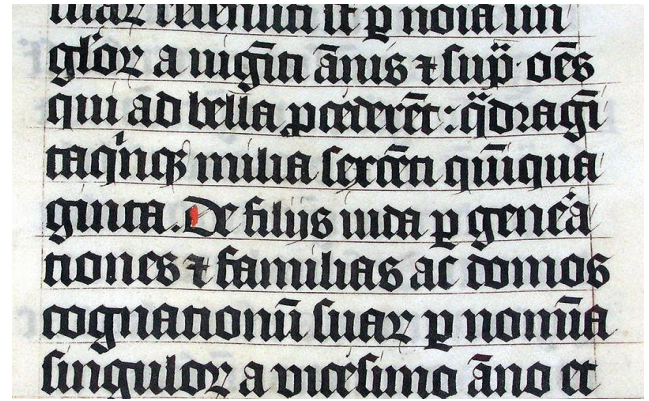 suaꝝ recensiti s̄t ꝑ noīa sin
gľoꝝ a uiḡiti ānis ⁊ sup̈· oēs
qui ad bella ꝓcederēt : q̈dragī
taqͥnqꝫ milia sexcēti qūiqua
ginta. De filijs iuda ꝑ gene͛a
tiones ⁊ familias ac domos
cognationū suaꝝ ꝑ nomīa
singuloꝝ a uicesimo āno et